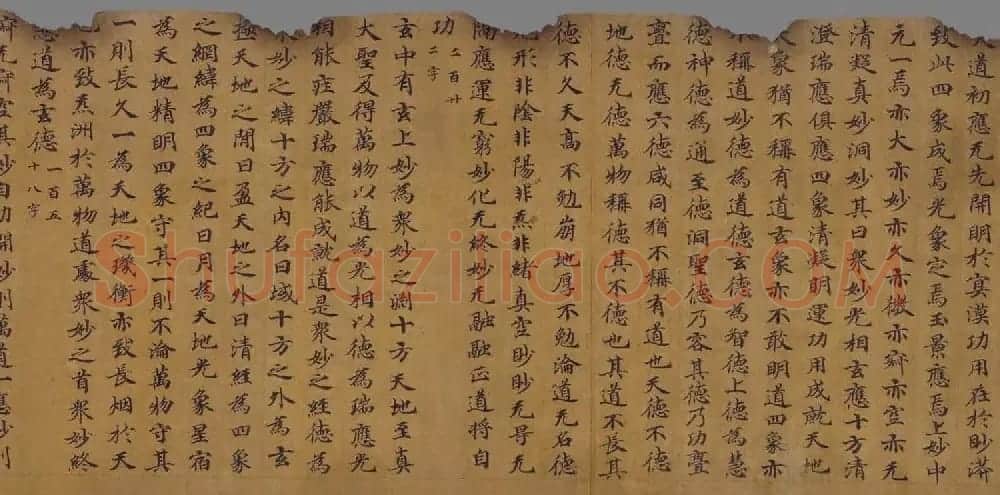 道初應无先開明於冥漠功用在於眇漭
致此四象成焉光象定焉玉景應焉上妙中
元一焉亦大亦妙亦久亦微亦齊亦空亦无
清凝真妙洞妙其曰衆妙光相玄應十方清
澄瑞應俱應四象清凝明運功用成就天地
象猶不稱有道玄象亦不敢明道四象亦
不稱道妙德為道德玄為智德上德為慧
德神德為通至德洞聖德乃容其德乃功亶
亶而應六德咸同猶不稱有道也天德不德
地德无德萬物稱德其不德也其道不長其
德不久天高不勉崩地厚不勉淪道无名德
形非陰非陽非炁非緒真空眇眇无㝵无
隔應運无窮妙化无終妙无融融正道將自
功
二百廿
二字
玄中有玄上妙為衆妙之淵十方天地至真
大聖及得萬物以道為光相以德為瑞應光
相能症嚴瑞應能成就道是衆妙之經德為
妙之緯十方之內名曰域十方之外為玄
極天地之間曰盈天地之外曰清經為四象
之綱緯為四象之紀日月為天地光象星宿
為天地精明四象守其一則不淪萬物守其
一則長久一為天地之璣衡亦致長烟於天
地亦致炁洲於萬物道處衆妙之首衆妙終
道為玄德
一百五
十八字
无齊空其妙自功開妙則萬道一應妙則
Shufaziliao.COM